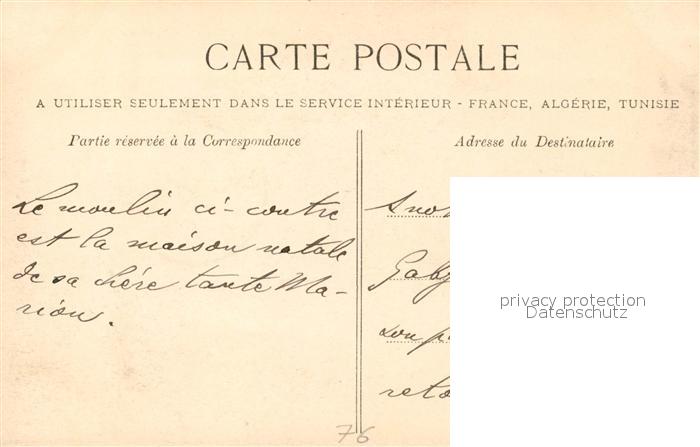 CARTE POSTALE
A UTILISER SEULEMENT DANS LE SERVICE INTÉRIEUR - FRANCE, ALGÉRIE, TUNISIE
Partie réservée à la Correspondance
Adresse du Destinataire
Le moulin ci-contre
est la maison natale
de sa chère tante Ma-
rion.
Gaby
privacy protection
Datenschutz
76